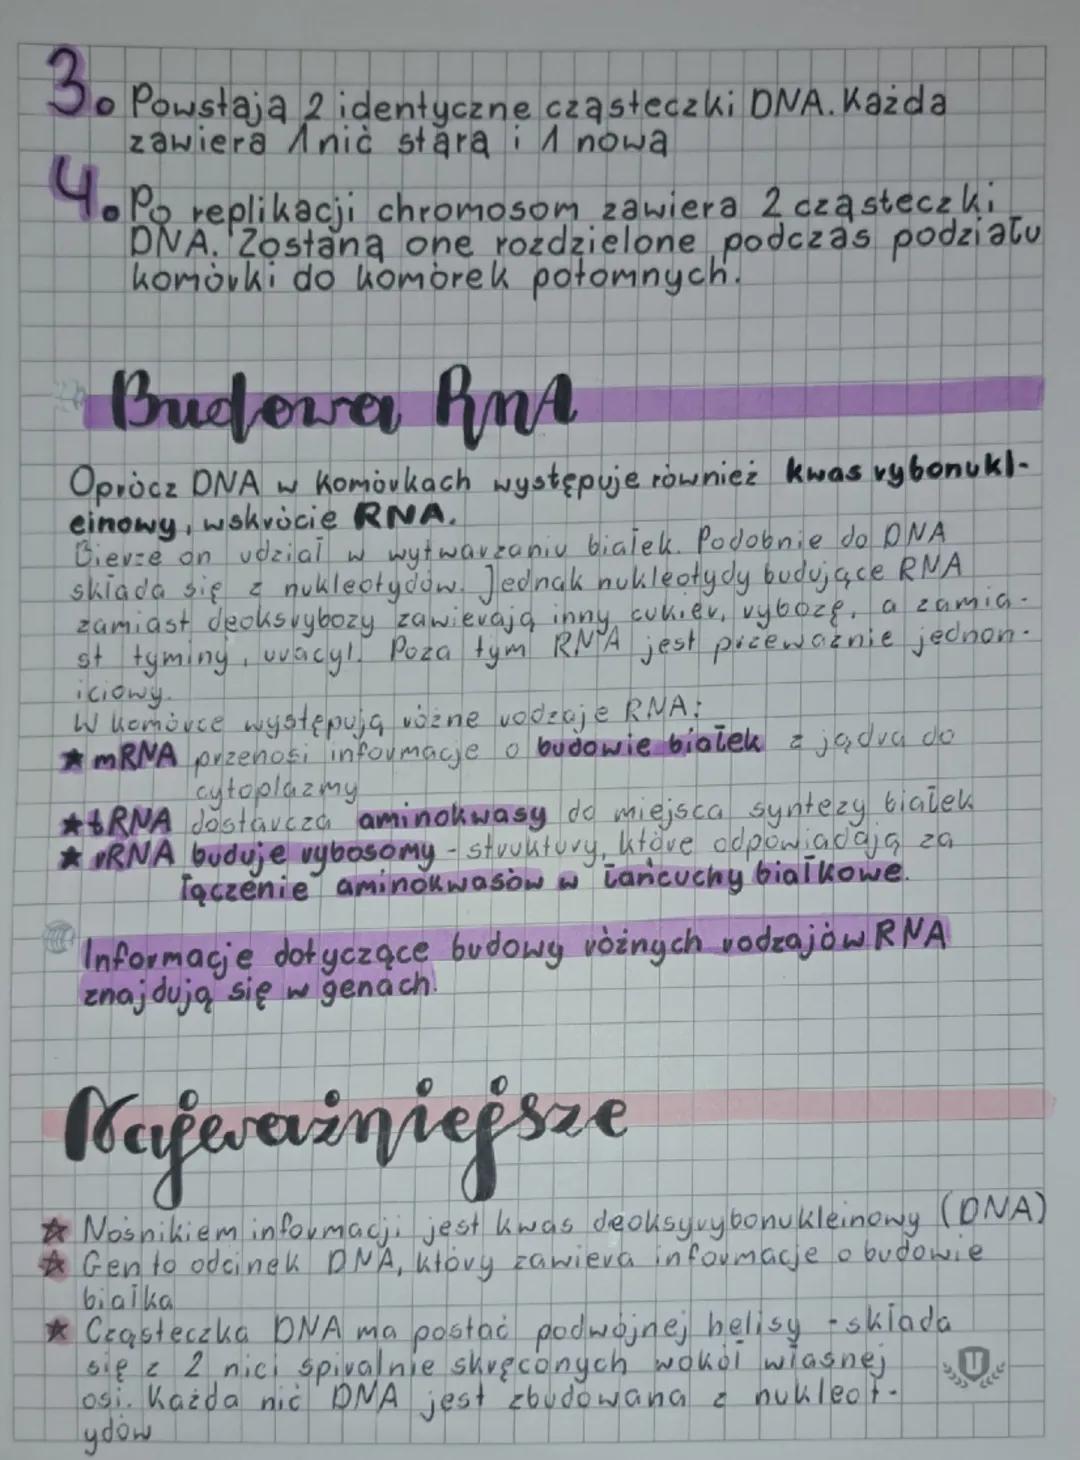 3. Powstają 2 identyczne cząsteczki DNA. Każda
zawiera 1 nić starą i 1 nową
4. Po replikacji chromosom zawiera 2 cząsteczki
DNA. Zostaną one rozdzielone podczas podziału
komórki do komórek potomnych.
Budowa RNA
Oprócz DNA w komórkach występuje również kwas rybonukl-
einowy, wskrócie RNA.
Bierze on udział w wytwarzaniu białek. Podobnie do DNA
składa się z nukleotydów. Jednak nukleotydy budujące RNA
zamiast deoksrybozy zawierają inny cukier, rybozę, a zamia-
st tyminy, uracyl. Poza tym RNA jest przeważnie jednon-
iciowy.
W komórce występują różne rodzaje RNA:
★ mRNA przenosi informacje o budowie białek z jądra do
cytoplazmy
★ tRNA dostarcza aminokwasy do miejsca syntezy białek
★ rRNA buduje rybosomy - struktury, które odpowiadają za
łączenie aminokwasów w łańcuchy białkowe.
Informacje dotyczące budowy różnych rodzajów RNA
znajdują się w genach.
Najważniejsze
☆ Nośnikiem informacji jest kwas deoksyrybonukleinowy (DNA)
☆ Gen to odcinek DNA, który zawiera informacje o budowie
białka
☆ Cząsteczka DNA ma postać podwójnej helisy - składa
się z 2 nici spiralnie skręconych wokół własnej
osi. Każda nić DNA jest zbudowana z nukleot-
ydów
U